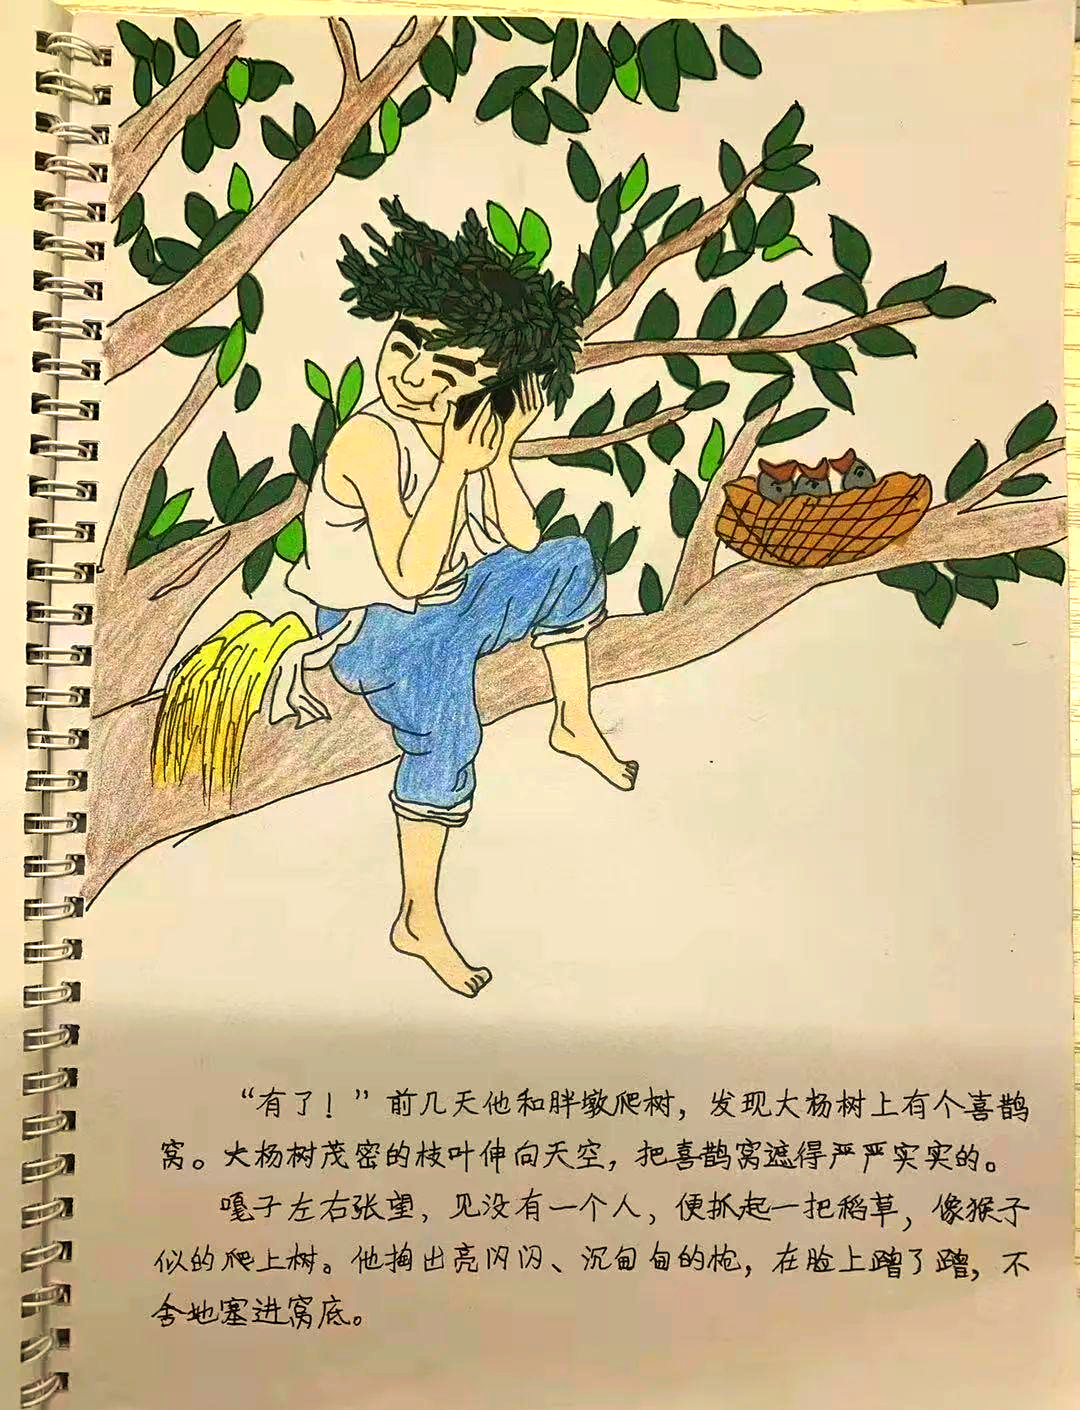 “有了！”前几天他和胖墩爬树，发现大杨树上有个喜鹊
窝。大杨树茂密的枝叶伸向天空，把喜鹊窝遮得严严实实的。
嘎子左右张望，见没有一个人，便抓起一把稻草，像猴子
似的爬上树。他掏出亮闪闪、沉甸甸的枪，在脸上蹭了蹭，不
舍地塞进窝底。